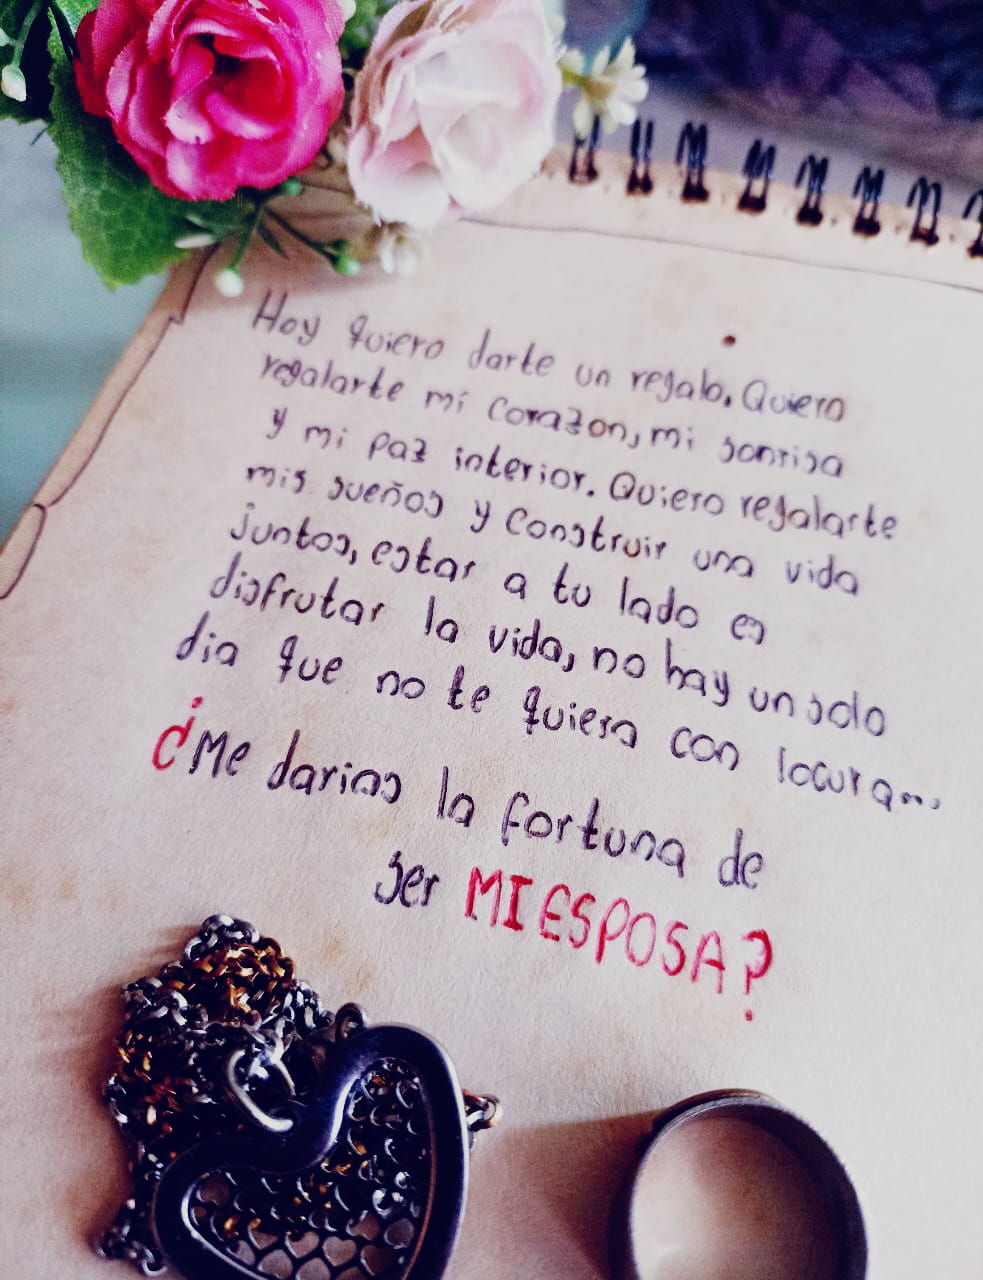 Hoy quiero darte un regalo. Quiero
regalarte mi corazon, mi sonrisa
y mi paz interior. Quiero regalarte
mis sueños y construir una vida
juntos, estar a tu lado es
disfrutar la vida, no hay un solo
dia que no te quiera con locura...
¿Me darias la fortuna de
ser MI ESPOSA?